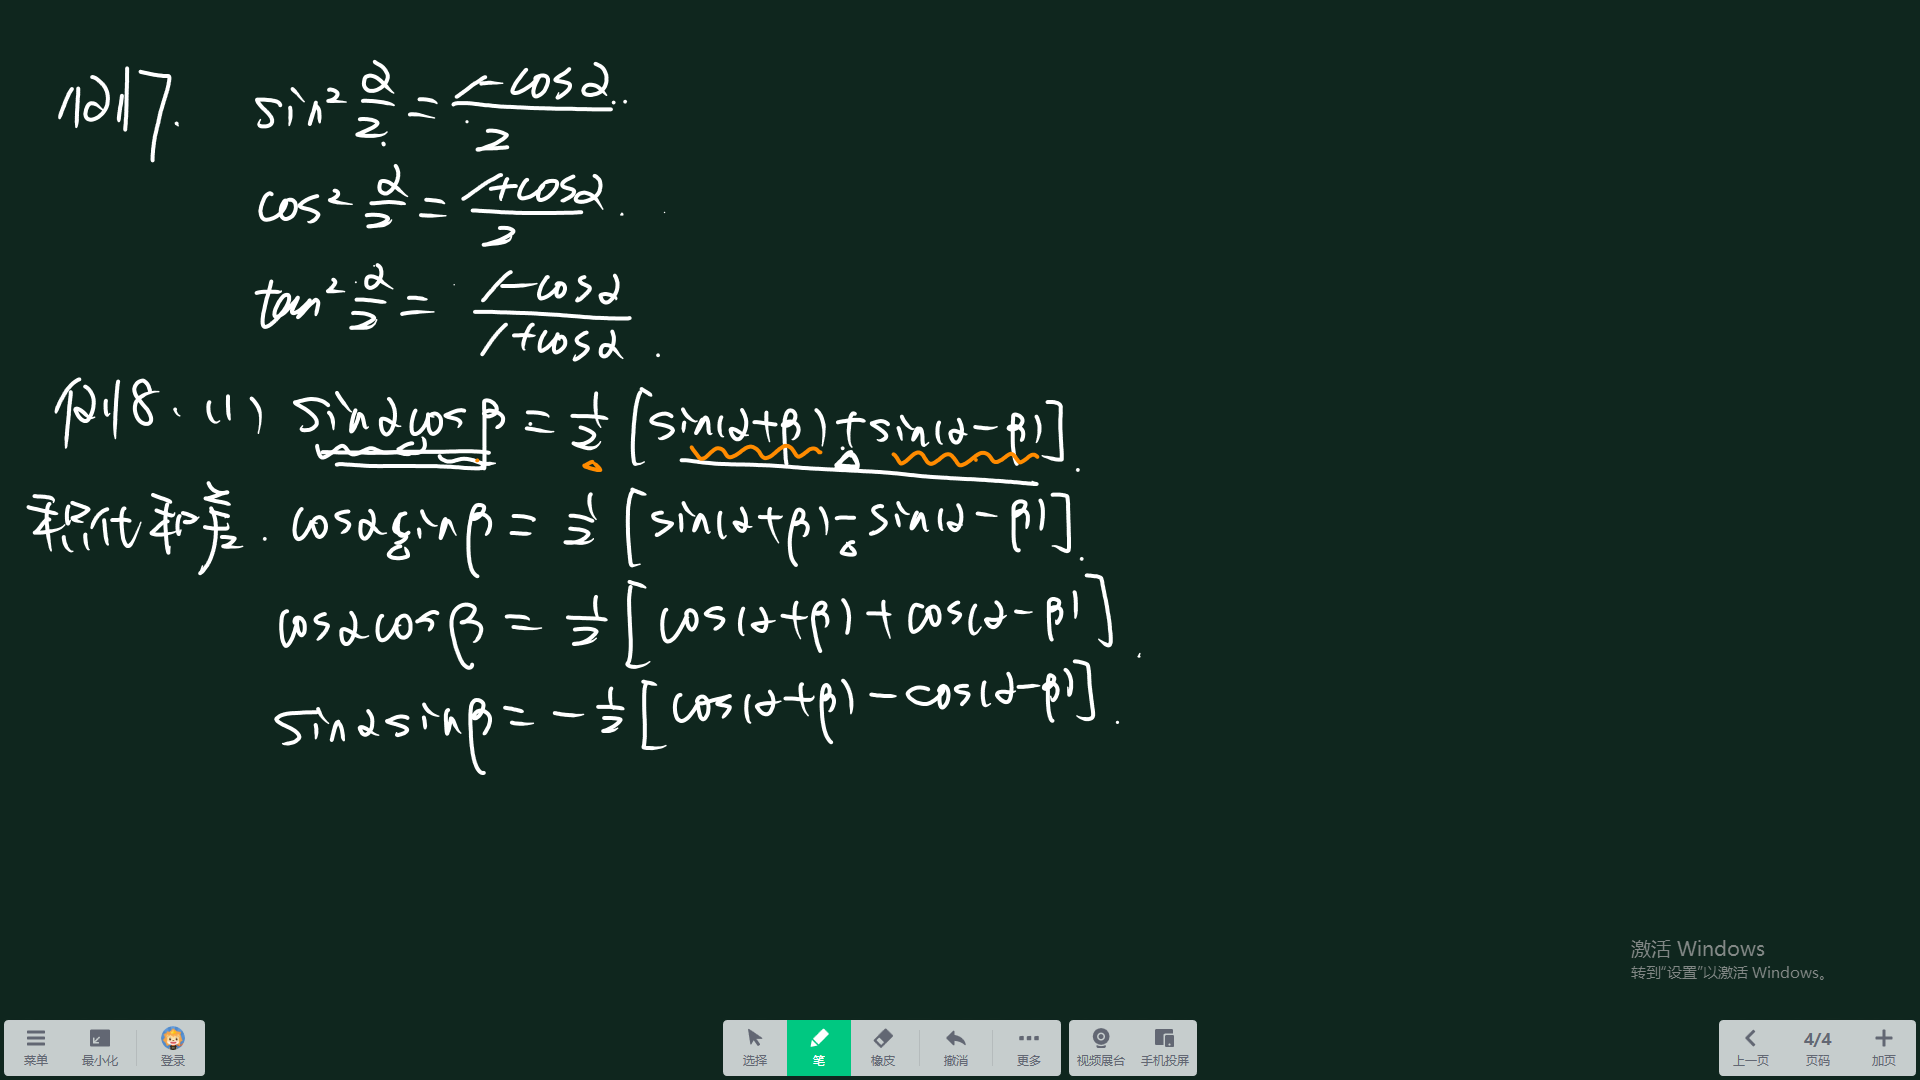 例7. sin² α/2 = (1-cosα)/2 .
cos² α/2 = (1+cosα)/2 .
tan² α/2 = (1-cosα)/(1+cosα) .
例8. (1) sinαcosβ = 1/2 [sin(α+β)+sin(α-β)] .
积化和差. cosαsinβ = 1/2 [sin(α+β)-sin(α-β)] .
cosαcosβ = 1/2 [cos(α+β)+cos(α-β)] .
sinαsinβ = -1/2 [cos(α+β)-cos(α-β)] .
激活 Windows
转到“设置”以激活 Windows。
菜单 最小化 登录 选择 笔 橡皮 撤消 更多 视频展台 手机投屏 上一页 4/4 页码 加页